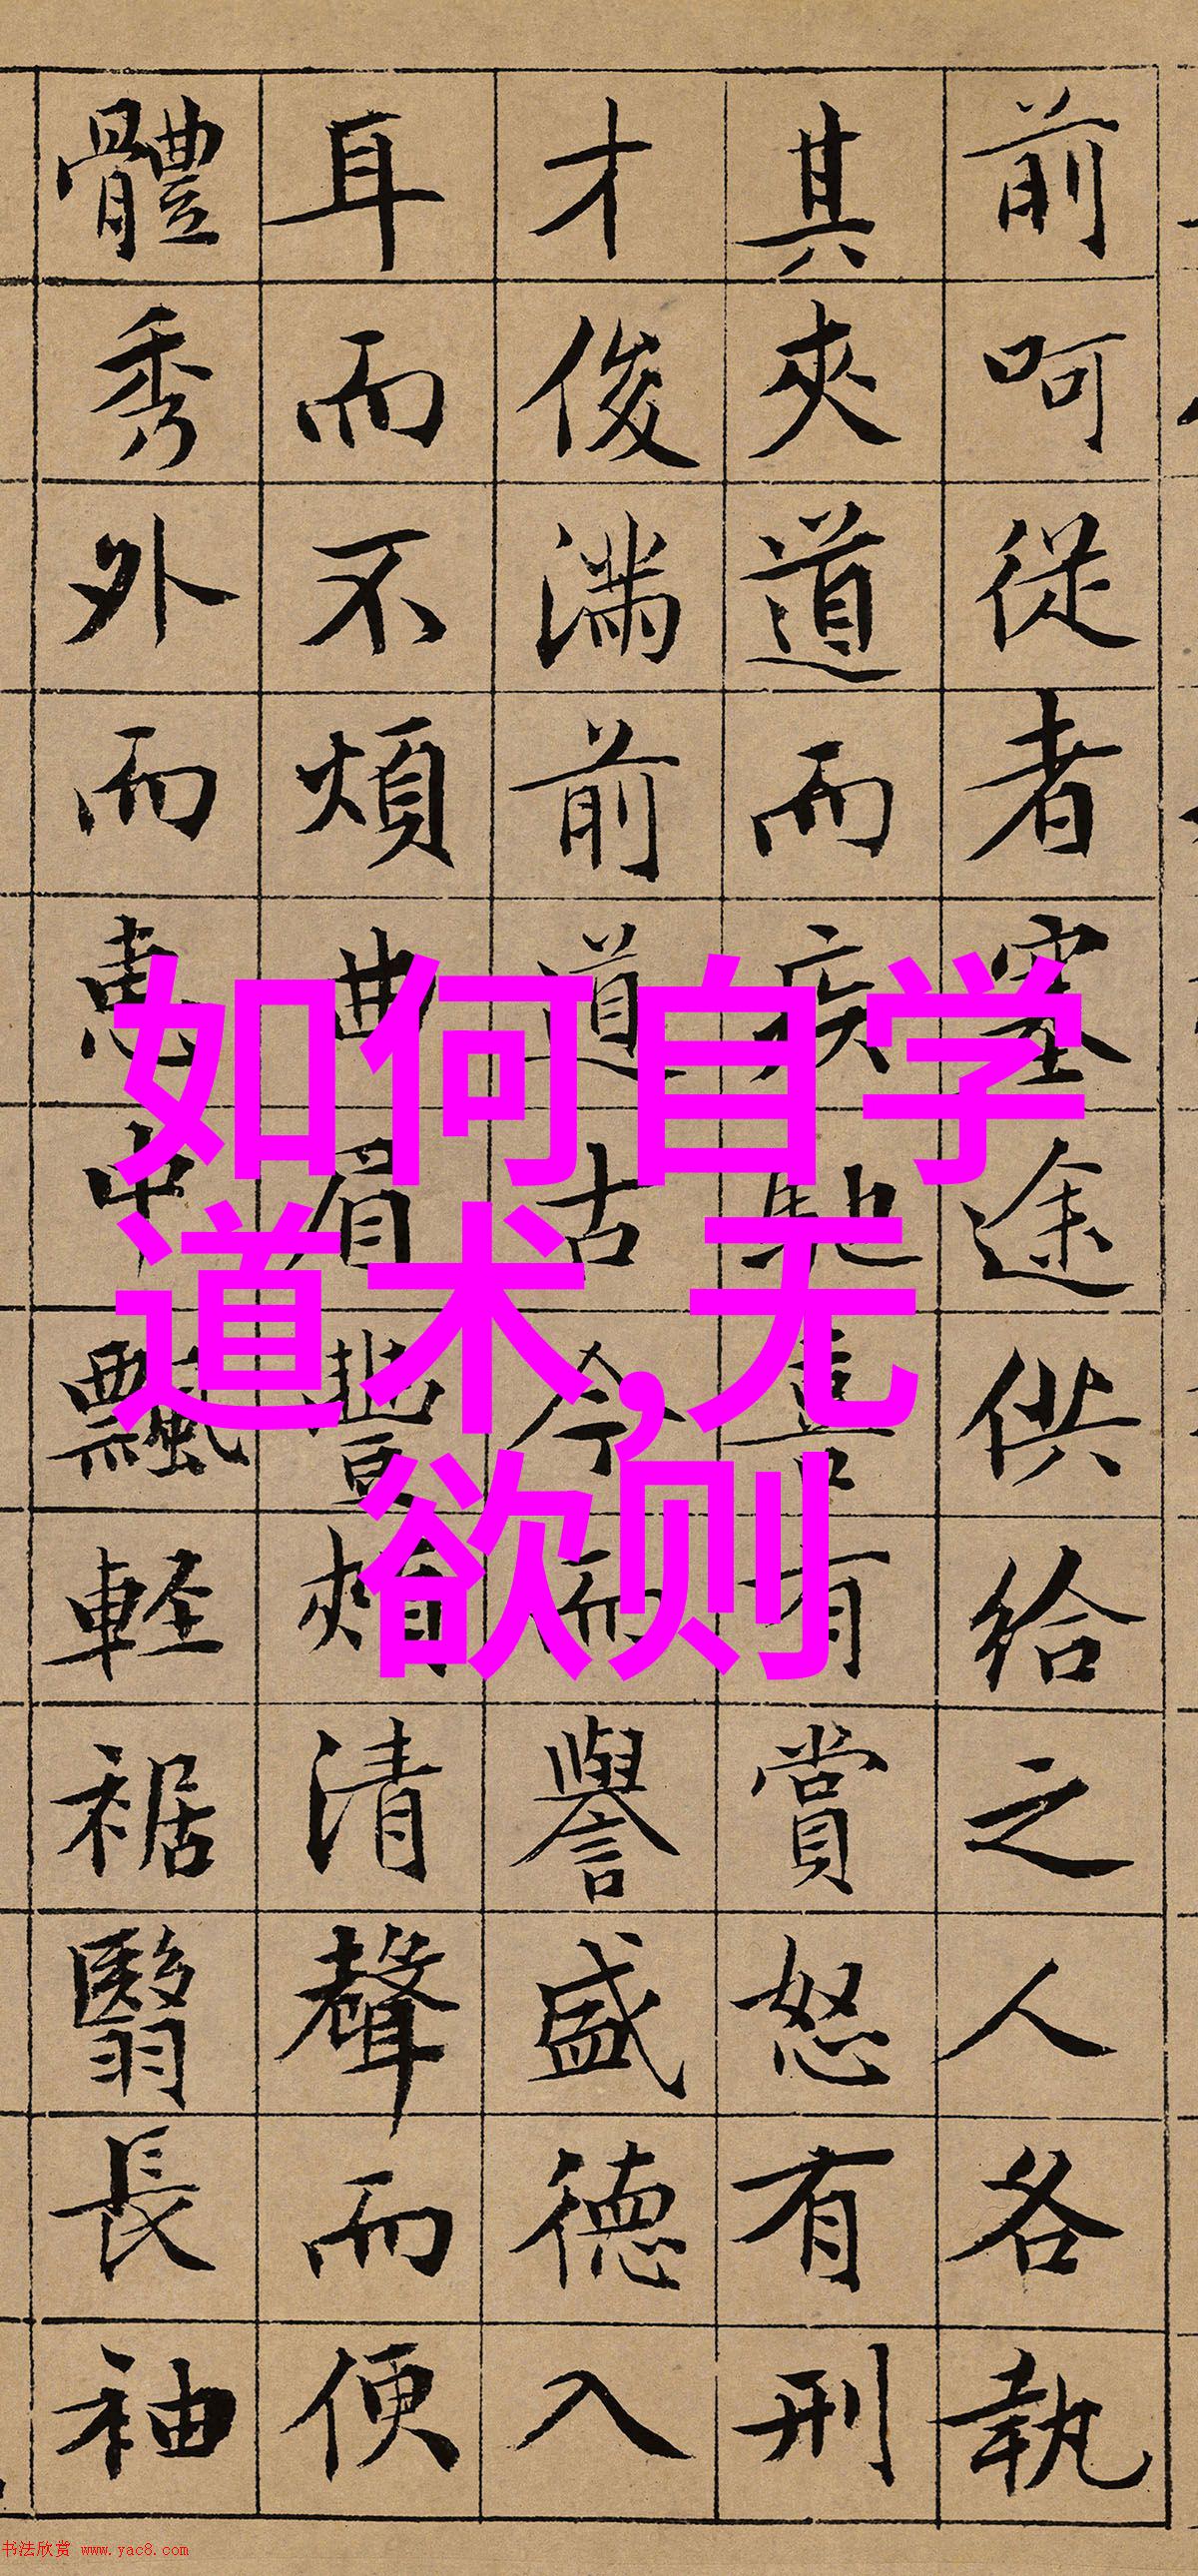 前呵從者塞途供給之人各執
其夾道而疾馳喜有賞怒有刑
才俊滿前道古今而譽盛德入
耳而不煩曲眉豐頰清聲而便
體秀外而惠中飄輕裾翳長袖
如何自学
道术,无
欲则
书法欣赏 www.yac8.com